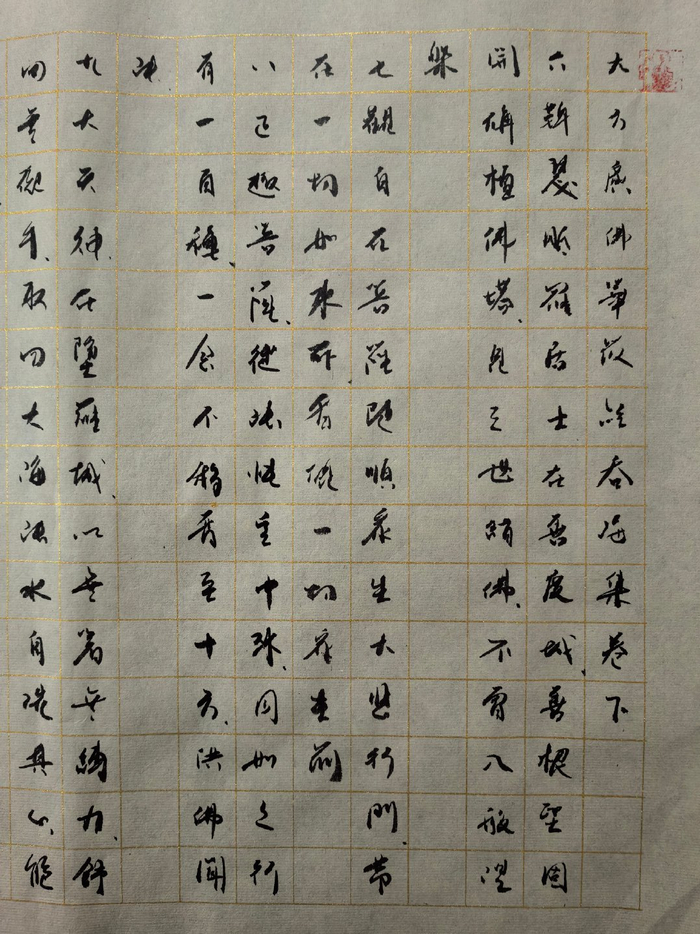 大方廣佛華嚴經吞海集卷下
六鞞瑟胝羅居士在善度城善根堅固
開旃檀佛塔見三世諸佛不曾入般涅
槃
七觀自在菩薩隨順眾生大悲行門常
在一切如來所普現一切眾生前
八正趣菩薩從中因如之行
有一百種一念不移普至十方供佛聞
法
九大天神在墮羅城以無著無縛力舒
四長臂手取四大海法水自洗其心能